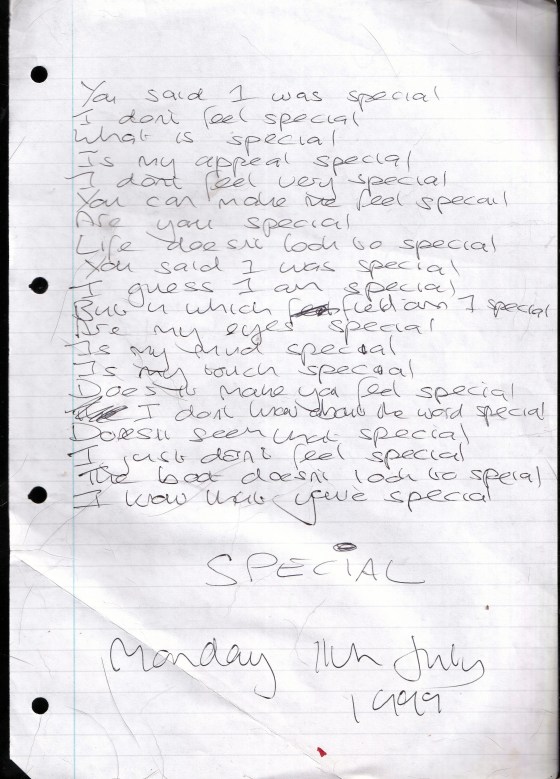 You said I was special
I don't feel special
What is special
Is my appeal special
I dont feel very special
You can make me feel special
Are you special
Life doesn't look to special
You said I was special
I guess I am special
But in which field am I special
Are my eyes special
Is my mind special
Is my touch special
Does it make you feel special
I don't know about the word special
Doesn't seem that special
I just don't feel special
The boat doesn't look to special
I know that you're special
SPECIAL
Monday 11th July
1999